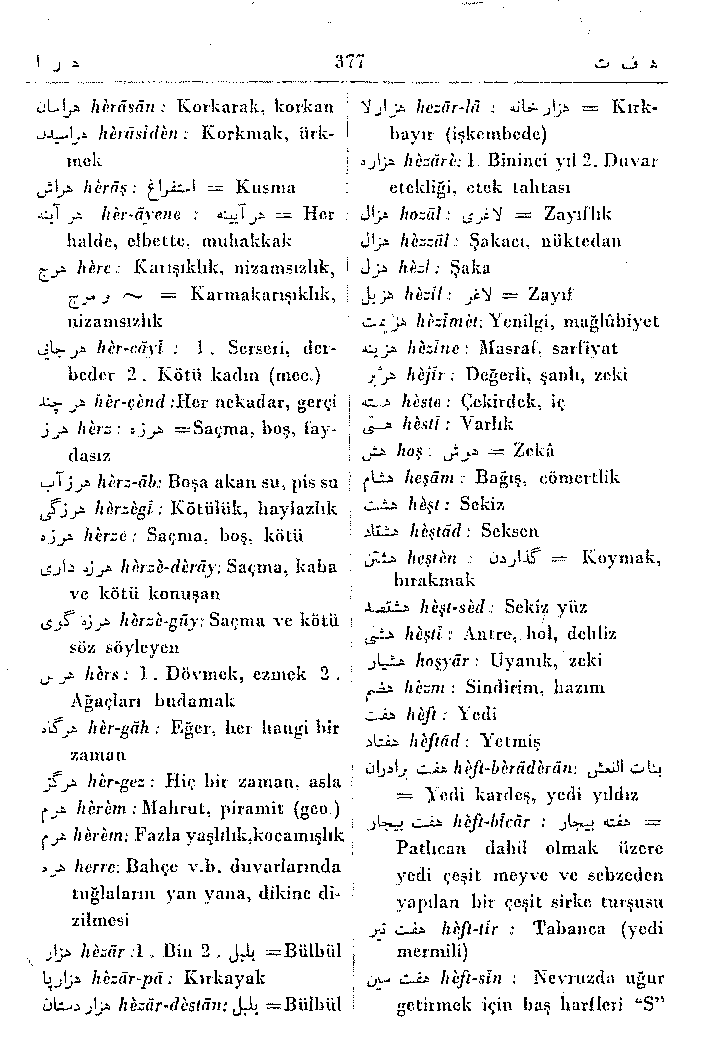 هـ ر ا 377 هـ ف ت
هراسان hèrāsān : Korkarak, korkan
هراسیدن hèrāsidèn : Korkmak, ürk-
mek
هراش hèrāş : استفراغ = Kusma
هر آینه hèr-āyene : هر آیینه = Her
halde, elbette, muhakkak
هرج hèrc : Karışıklık, nizamsızlık,
~ و مرج = Karmakarışıklık,
nizamsızlık
هر جایی hèr-cāyī : 1. Serseri, der-
beder 2. Kötü kadın (mec.)
هر چند hèr-çènd :Her nekadar, gerçi
هرز hèrz : هرزه =Saçma, boş, fay-
dasız
هرز آب hèrz-āb: Boşa akan su, pis su
هرزگی hèrzègī : Kötülük, haylazlık
هرزه hèrzè : Saçma, boş, kötü
هرزه درای hèrzè-dèrāy: Saçma, kaba
ve kötü konuşan
هرزه گوی hèrzè-gūy: Saçma ve kötü
söz söyleyen
هرس hèrs : 1. Dövmek, ezmek 2.
Ağaçları budamak
هرگاه hèr-gāh : Eğer, her hangi bir
zaman
هرگز hèr-gez : Hiç bir zaman, asla
هرم hèrèm : Mahrut, piramit (geo.)
هرم hèrèm: Fazla yaşlılık,kocamışlık
هره herre: Bahçe v.b. duvarlarında
tuğlaların yan yana, dikine di-
zilmesi
هزار hèzār :1. Bin 2. بلبل =Bülbül
هزارپا hèzār-pā : Kırkayak
هزار دستان hèzār-dèstān: بلبل =Bülbül
هزارلا hezār-lā : هزار خانه = Kırk-
bayır (işkembede)
هزاره hèzārè: 1. Bininci yıl 2. Duvar
etekliği, etek tahtası
هزال hozāl : لاغری = Zayıflık
هزال hèzzāl : Şakacı, nüktedan
هزل hèzl : Şaka
هزیل hèzīl : لاغر = Zayıf
هزیمت hèzīmèt: Yenilgi, mağlûbiyet
هزینه hèzīne : Masraf, sarfiyat
هژیر hèjīr : Değerli, şanlı, zeki
هسته hèste : Çekirdek, iç
هستی hèstī : Varlık
هش hoş : هوش = Zekâ
هشام heşām : Bağış, cömertlik
هشت hèşt : Sekiz
هشتاد hèştād : Seksen
هشتن heştèn : گذاردن = Koymak,
bırakmak
هشتصد hèşt-sèd : Sekiz yüz
هشتی hèştī : Antre, hol, dehliz
هشیار hoşyār : Uyanık, zeki
هضم hèzm : Sindirim, hazım
هفت hèft : Yedi
هفتاد hèftād : Yetmiş
هفت برادران hèft-bèrādèrān: بنات النعش
= Yedi kardeş, yedi yıldız
هفت بیجار hèft-bīcār : هفته بیجار =
Patlıcan dahil olmak üzere
yedi çeşit meyve ve sebzeden
yapılan bir çeşit sirke turşusu
هفت تیر hèft-tīr : Tabanca (yedi
mermili)
هفت سین hèft-sīn : Nevruzda uğur
getirmek için baş harfleri “S”